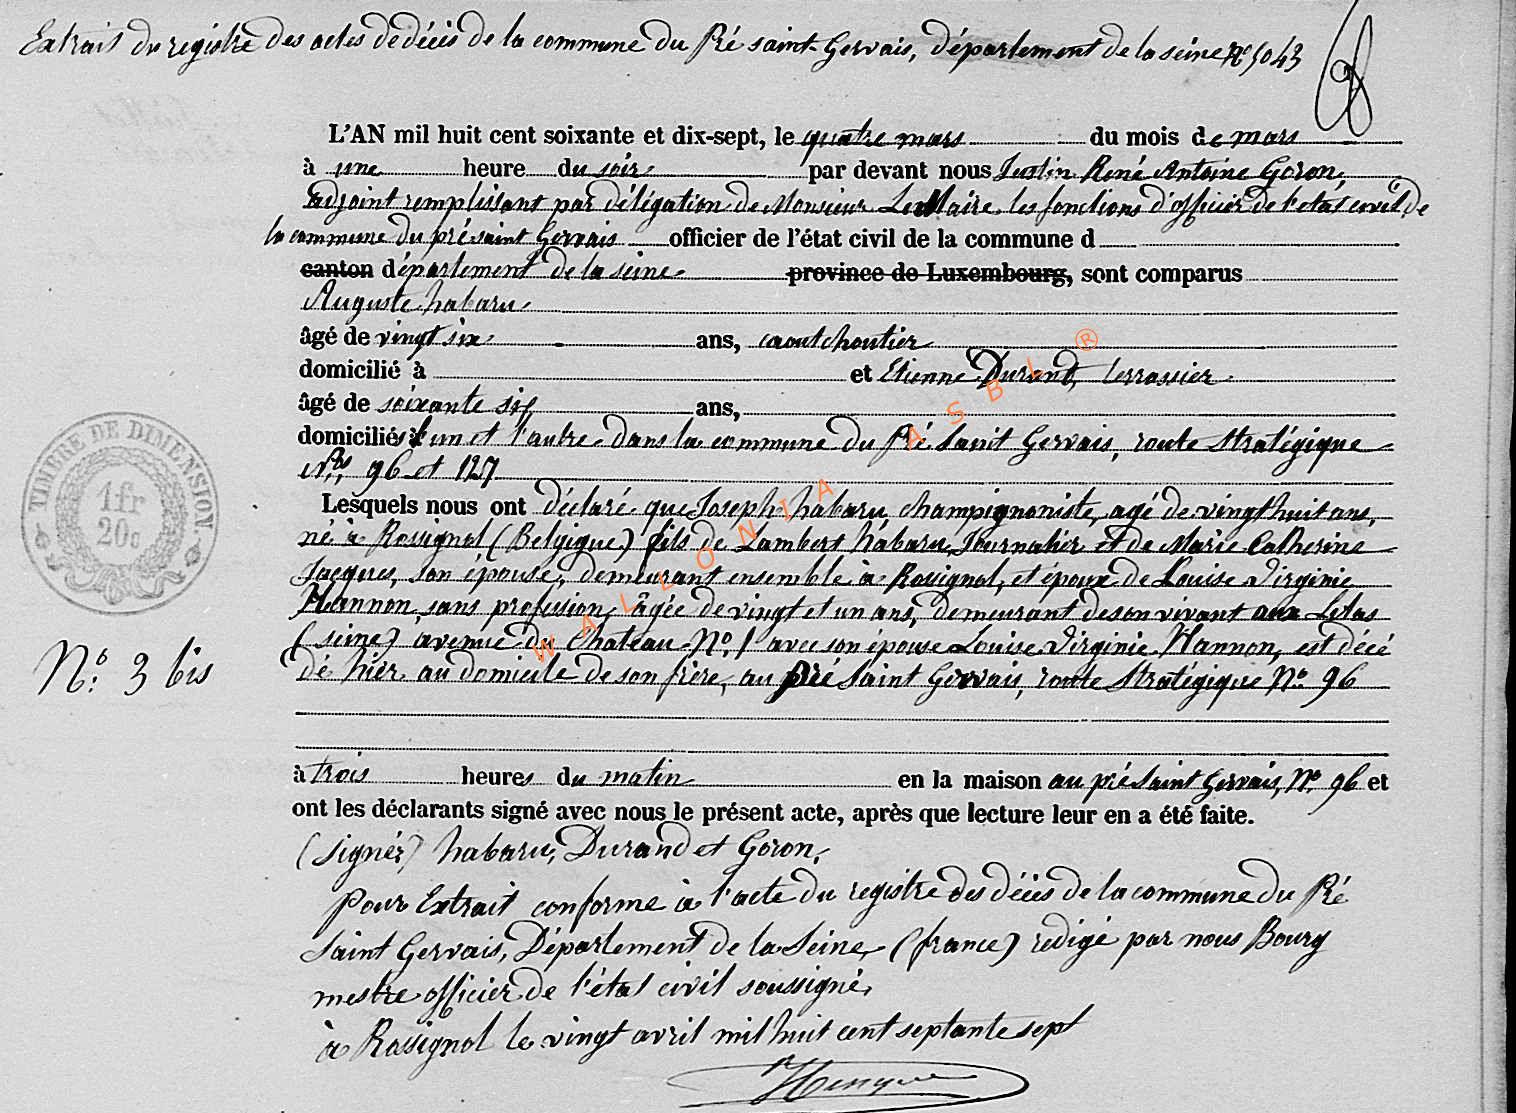 Extrait du registre des actes de décès de la commune du Pré saint-Gervais, département de la seine N° 5043
68
L'AN mil huit cent soixante et dix-sept, le quatre mars du mois de mars
à une heure du soir par devant nous Justin René Antoine Goron,
adjoint remplissant par délégation de Monsieur Le Maire les fonctions d'officier de l'état civil de
la commune du pré saint Gervais officier de l'état civil de la commune d
canton département de la seine province de Luxembourg, sont comparus
Auguste habaru
âgé de vingt six ans, caoutchoutier
domicilié à et Etienne Durand, terrassier
âgé de soixante six ans,
domiciliés l'un et l'autre dans la commune du Pré Saint Gervais, route Stratégique
Nos 96 et 127
Lesquels nous ont déclaré que Joseph habaru champignoniste, agé de vingt huit ans,
né à Rossignol (Belgique) fils de Lambert habaru, Journalier et de Marie Catherine
Jacques, son épouse, demeurant ensemble à Rossignol, et époux de Louise Virginie
Hannon, sans profession, âgée de vingt et un ans, demeurant de son vivant aux Lilas
(seine) avenue du Chateau No. 1 avec son épouse Louise Virginie Hannon, est décé
dé hier au domicile de son frère, au pré Saint Gervais, route Stratégique No. 96
N°: 3 bis
à trois heures du matin en la maison au pré Saint Gervais, No. 96 et
ont les déclarants signé avec nous le présent acte, après que lecture leur en a été faite.
(signé) habaru, Durand et Goron.
Pour Extrait conforme à l'acte du registre des décès de la commune du Pré
Saint Gervais, Département de la Seine, (france) redigé par nous Bourg
mestre officier de l'état civil soussigné,
à Rossignol le vingt avril mil huit cent septante sept
TIMBRE DE DIMENSION
1 fr
20c
WALLONIA ASBL ®